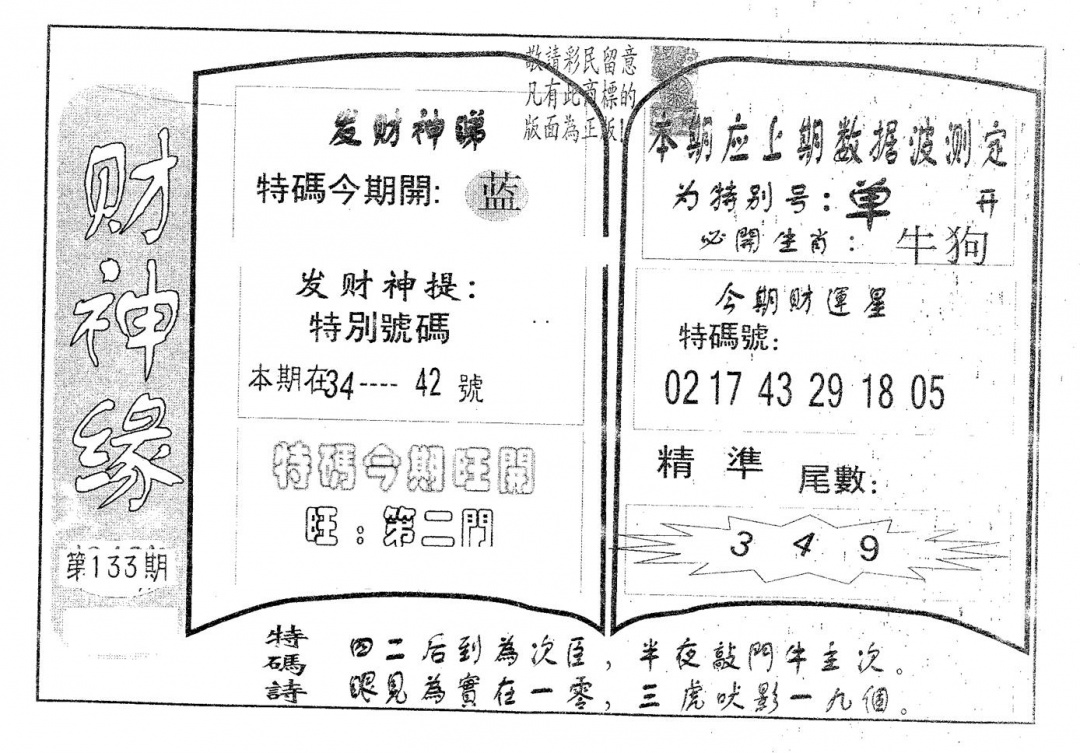 财神缘
第133期
敬請彩民留意
凡有此商標的
版面為正版!
发财神睇
特碼今期開: 蓝
发财神提:
特別號碼
本期在34---- 42 號
特碼今期旺開
旺: 第二門
本期应上期数据波测定
为特别号: 单 开
必開生肖: 牛狗
今期財運星
特碼號:
02 17 43 29 18 05
精準 尾數:
3 4 9
特碼詩
四二后到為次臣, 半夜敲門牛主次。
眼見為實在一零, 三虎吠影一九個。